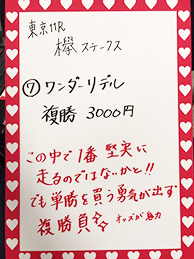 東京11R
欅ステークス
⑦ワンダーリデル
複勝 3000円
この中で1番堅実に
走るのではないかと!!
でも単勝を買う勇気が出ず
複勝負
オッズが魅力